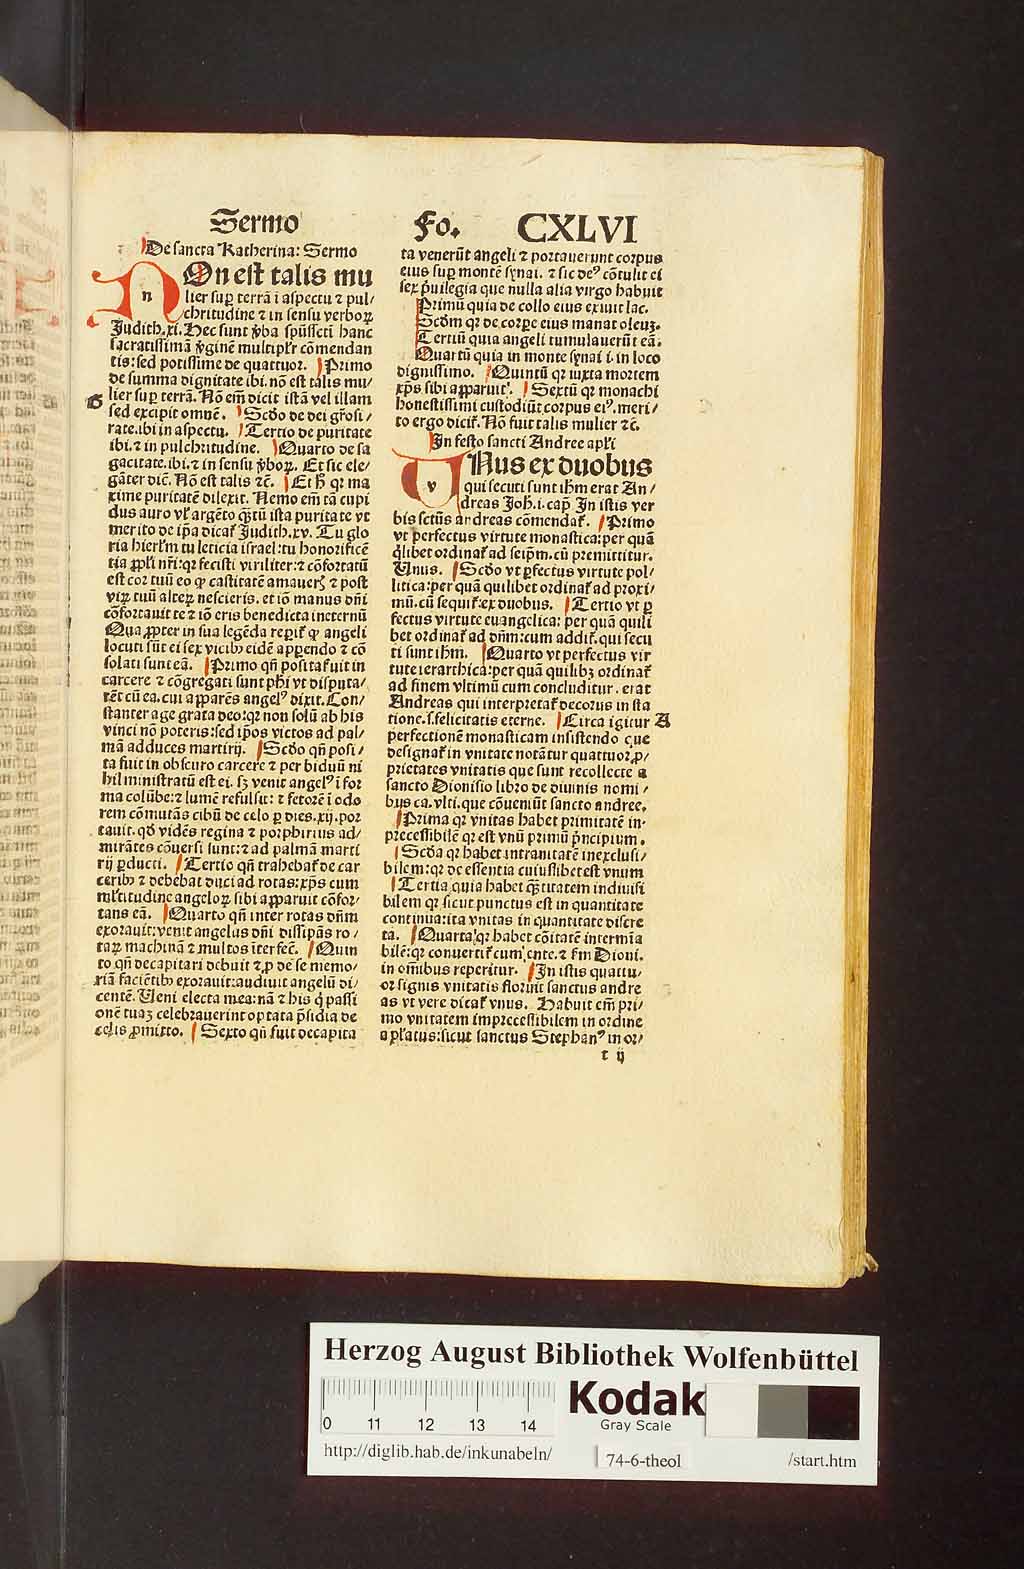 Sermo Fo. CXLVI
De sancta Katherina: Sermo
NOn est talis mu
lier suꝑ terrā ī aspectu ⁊ pul/
chritudine ⁊ in sensu verboꝝ
Judith.xi. Hec sunt v̄ba spūssctī hanc
sacratissimā v̄ginē multiplr̄ cōmendan
tis: sed potissime de quattuor. Primo
de summa dignitate ibi. nō est talis mu/
lier suꝑ terrā. Nō em̄ dicit istā vel illam
G
sed excipit omnē. Scd̄o de dei gr̄osi/
tate.ibi in aspectu. Tertio de puritate
ibi. ⁊ in pulchritudine. Quarto de sa
gacitate. ibi. ⁊ in sensu v̄boꝝ. Et sic ele/
gāter dic̄. Nō est talis ⁊c̄. Et h̄ qꝛ ma
xime puritatē dilexit. Nemo em̄ tā cupi
dus auro vl̓ argēto q̄ꝫtū ista puritate vt
merito de ip̄a dicat̓ Judith.xv. Tu glo
ria hierl̓m tu leticia israel: tu honorificē
tia ppl̓i nr̄i: qꝛ fecisti viriliter: ⁊ cōfortatū
est cor tuū eo ꝙ castitatē amauerꝭ ⁊ post
viꝝ tuū alteꝝ nescieris. et iō manus dn̄i
cōfortauit te ⁊ iō eris benedicta ineternū
Quaꝓpter in sua legēda reꝑit̓ ꝙ angeli
locuti sūt ei sex vicibꝫ eidē apꝑendo ⁊ cō
solati sunt eā. Primo qn̄ posita fuit in
carcere ⁊ cōgregati sunt ph̓i vt disputa/
rēt cū ea. cui apparēs angelꝰ dixit. Con/
stanter age grata deo: qꝛ non solū ab his
vinci nō poteris: sed ip̄os victos ad pal/
mā adduces martirij. Scd̄o qn̄ posi/
ta fuit in obscuro carcere ⁊ per biduū ni
hil ministratū est ei. sꝫ venit angelꝰ ī for
ma colūbe: ⁊ lumē refulsit: ⁊ fetorē ī odo
rem cōmutās cibū de celo ꝑ dies.xij. por
tauit. qd̓ vidēs regina ⁊ porphirius ad/
mirātes cōuersi sunt: ⁊ ad palmā marti
rij ꝑducti. Tertio qn̄ trahebat̓ de car
ceribꝫ ⁊ debebat duci ad rotas: xp̄s cum
ml̓titudine angeloꝝ sibi apparuit cōfor/
tans eā. Quarto qn̄ inter rotas dn̄m
exorauit: venit angelus dn̄i dissipās ro/
taꝝ machinā ⁊ multos īterfec̄. Quin
to qn̄ decapitari debuit ⁊ ꝓ de se memo/
riā faciētibꝫ exorauit: audiuit angelū di/
centē. Ueni electa mea: nā ⁊ his q̓ passi
onē tuaꝫ celebrauerint optata p̄sidia de
celis ꝓmitto. Sexto qn̄ fuit decapita
ta venerūt angeli ⁊ portauerunt corpus
eius suꝑ montē synai. ⁊ sic deꝰ cōtulit ei
sex p̓uilegia que nulla alia virgo habuit
Primū quia de collo eius exiuit lac.
Scd̄m qꝛ de corꝑe eius manat oleuꝫ.
Tertiū quia angeli tumulauerūt eā.
Quartū quia in monte synai i. in loco
dignissimo. Quintū qꝛ iuxta mortem
xp̄s sibi apparuit. Sextū qꝛ monachi
honestissimi custodiūt corpus eiꝰ. meri/
to ergo dicit̓. Nō fuit talis mulier ⁊c̄.
In festo sancti Andree apl̓i
UNus ex duobus
qui secuti sunt ih̄m erat An/
dreas Joh.i. cap̄ In istis ver
bis sctūs andreas cōmendat̓. Primo
vt perfectus virtute monastica: per quā
q̓libet ordinat̓ ad seip̄m. cū premittitur.
Unus. Scd̄o vt ꝑfectus virtute pol/
litica: per quā quilibet ordinat̓ ad proxi/
mū. cū sequit̓: ex duobus. Tertio vt ꝑ
fectus virtute euangelica: per quā quili
bet ordinat̓ ad dn̄m: cum addit̓. qui secu
ti sunt ih̄m. Quarto vt perfectus vir
tute ierarthica: per quā quilibꝫ ordinat̓
ad finem vltimū cum concluditur. erat
Andreas qui interpretat̓ decorus in sta
tione.s.felicitatis eterne. Circa igitur A
perfectionē monasticam insistendo que
designat̓ in vnitate notātur quattuor ꝓ/
prietates vnitatis que sunt recollecte a
sancto Dionisio libro de diuinis nomi/
bus ca.vlti. que cōueniūt sancto andree.
Prima qꝛ vnitas habet primitatē in/
precessibilē qꝛ est vnū primū p̓ncipium.
Scd̄a qꝛ habet intranitatē inexclusi/
bilem: qꝛ de essentia cuiuslibet est vnum
Tertia quia habet q̄ꝫtitatem indiuisi
bilem qꝛ sicut punctus est in quantitate
continua: ita vnitas in quantitate discre
ta. Quarta qꝛ habet cōitatē intermīa
bilē: qꝛ conuertit̓ cum ente. ⁊ fm̄ Dioni.
in om̄ibus reperitur. In istis quattu/
or signis vnitatis floruit sanctus andre
as vt vere dicat̓ vnus. Habuit em̄ pri/
mo vnitatem imprecessibilem in ordine
ap̄latus: sicut sanctus Stephanꝰ in or/
t ij
Herzog August Bibliothek Wolfenbüttel
0 11 12 13 14
Kodak
Gray Scale
http://diglib.hab.de/inkunabeln/ 74-6-theol /start.htm